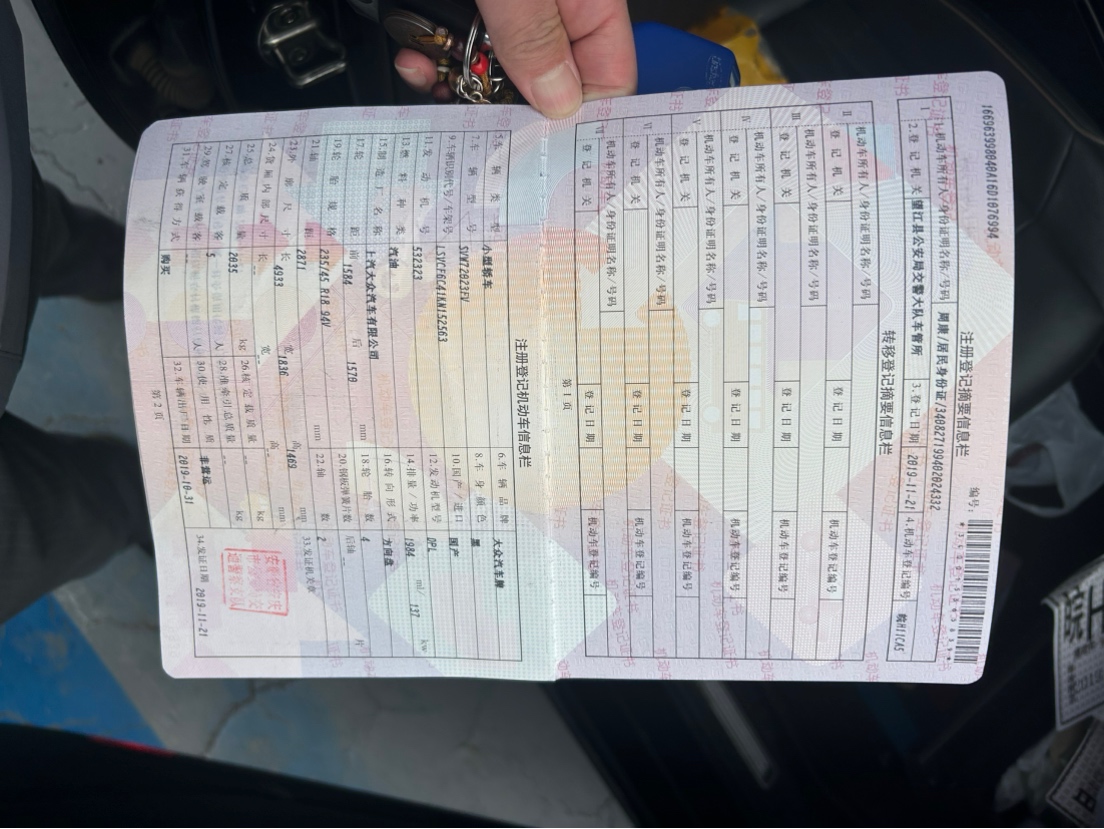 166963998040A16D1076994
注册登记摘要信息栏
编号:
1.机动车所有人/身份证明名称/号码 周康/居民身份证/340827199402024332
2.登记机关 望江县公安局交警大队车管所 3.登记日期 2019-11-21 4.机动车登记编号 皖H11CA5
转移登记摘要信息栏
Ⅱ 机动车所有人/身份证明名称/号码
登记机关 登记日期 机动车登记编号
Ⅲ 机动车所有人/身份证明名称/号码
登记机关 登记日期 机动车登记编号
Ⅳ 机动车所有人/身份证明名称/号码
登记机关 登记日期 机动车登记编号
Ⅴ 机动车所有人/身份证明名称/号码
登记机关 登记日期 机动车登记编号
Ⅵ 机动车所有人/身份证明名称/号码
登记机关 登记日期 机动车登记编号
Ⅶ 机动车所有人/身份证明名称/号码
登记机关 登记日期 机动车登记编号
第1页
注册登记机动车信息栏
5.车辆类型 小型轿车 6.车辆品牌 大众汽车牌
7.车辆型号 SVW72023FV 8.车身颜色 黑
9.车辆识别代号/车架号 LSVCF6C41KN152563 10.国产/进口 国产
11.发动机号 532323 12.发动机型号 DPL
13.燃料种类 汽油 14.排量/功率 1984 ml/ 137 kw
15.制造厂名称 上汽大众汽车有限公司 16.转向形式 方向盘
17.轮距 前 1584 后 1570 mm 18.轮胎数 4
19.轮胎规格 235/45 R18 94V 20.钢板弹簧片数 后轴 片
21.轴距 2871 mm 22.轴数 2
23.外廓尺寸 长 4933 宽 1836 高 1469 mm 33.发证机关章
24.货厢内部尺寸 长 宽 高 mm
25.总质量 2035 kg 26.核定载质量 kg
27.核定载客 5 人 28.准牵引总质量 kg
29.驾驶室载客 人 30.使用性质 非营运
31.车辆获得方式 购买 32.车辆出厂日期 2019-10-31 34.发证日期 2019-11-21
第2页
皖H